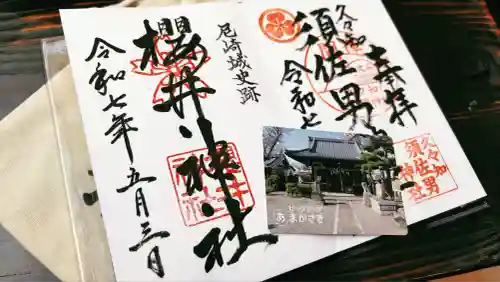 久々知
須佐男
奉拝
令和七
久々知
須佐男
神社
尼崎城史跡
櫻井神社
令和七年五月三日
あまがさき